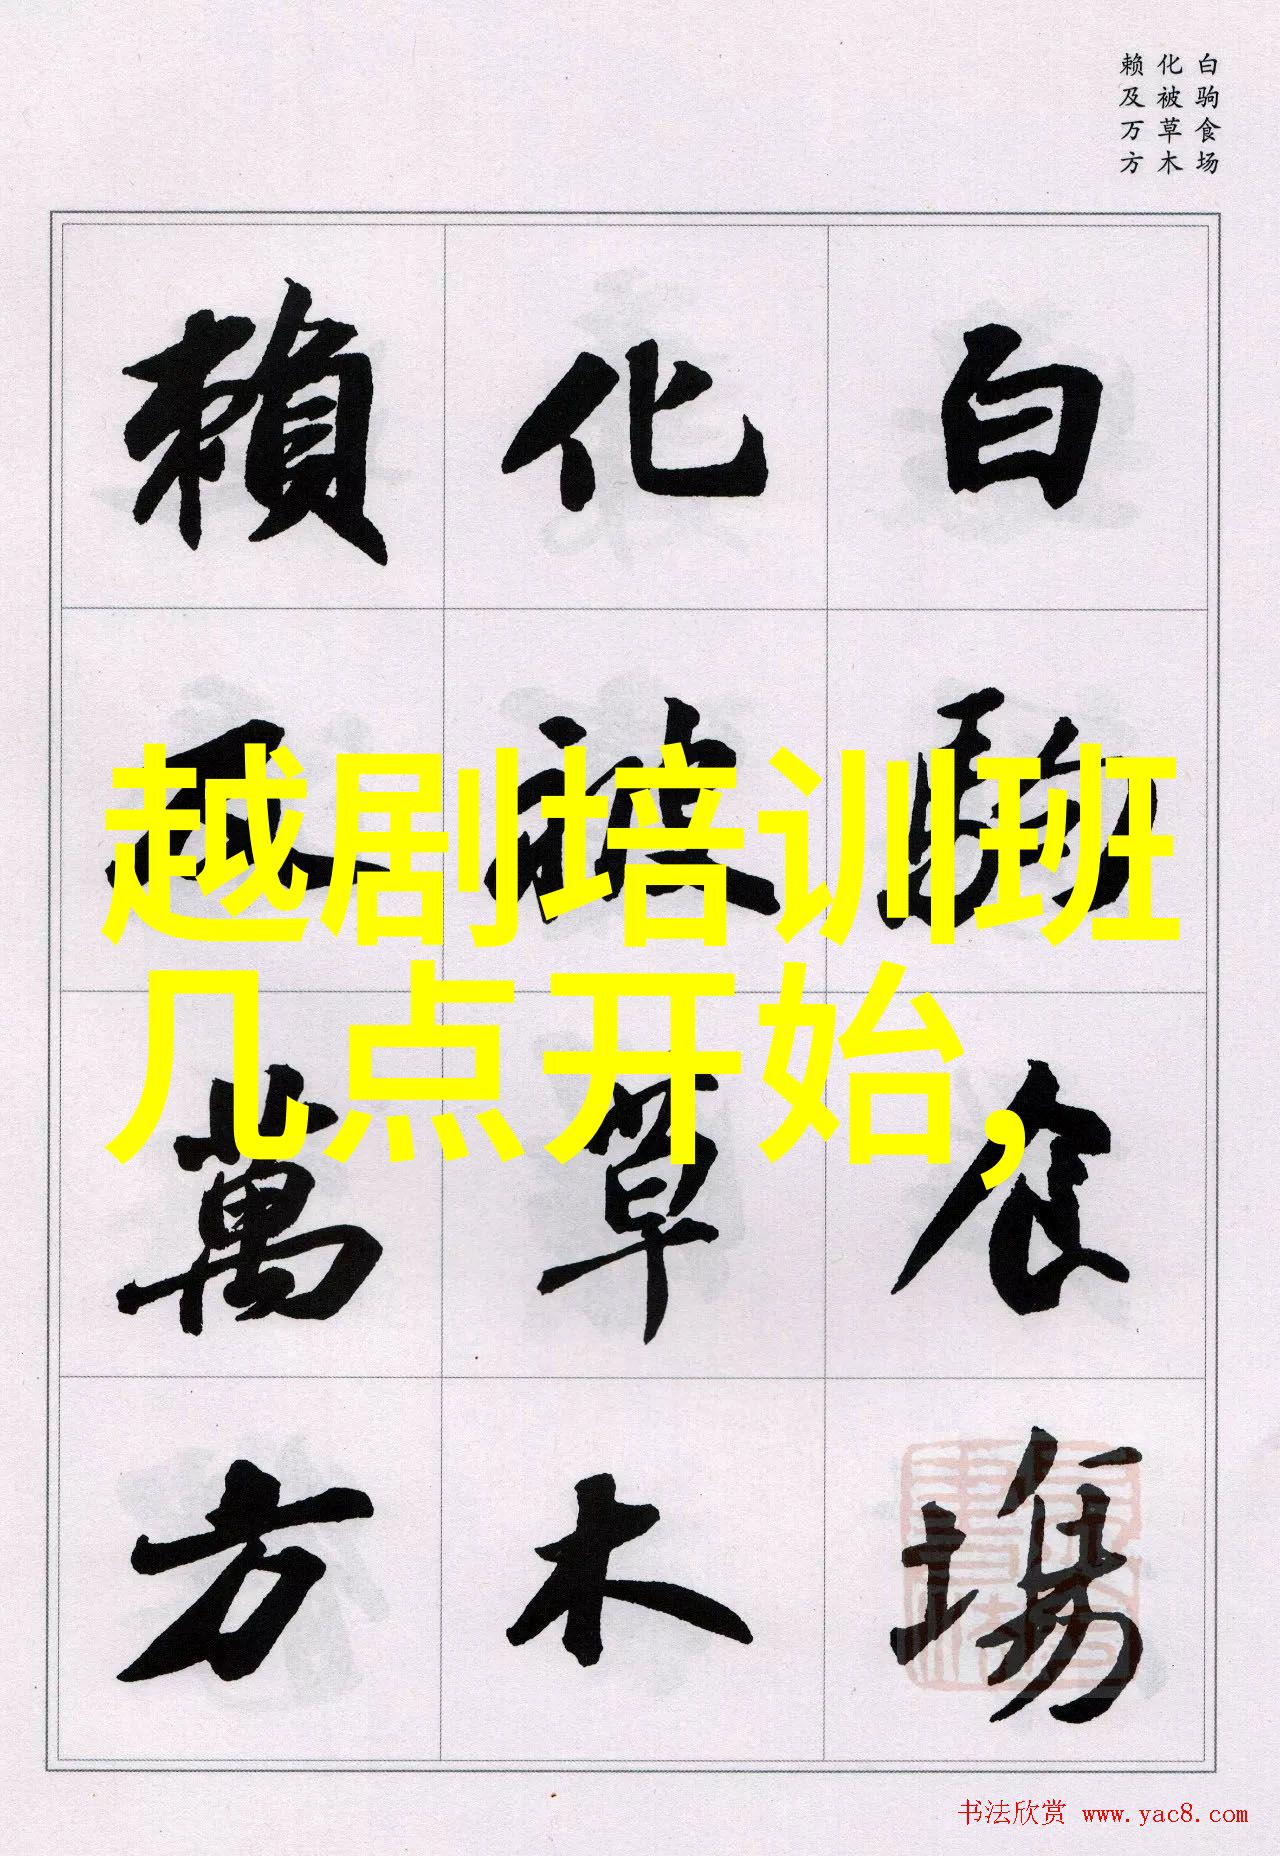 白驹食场
化被草木
赖及万方
白駒食場
化被草木
賴及萬方
越剧培训班
几点开始,
书法欣赏 www.yac8.com